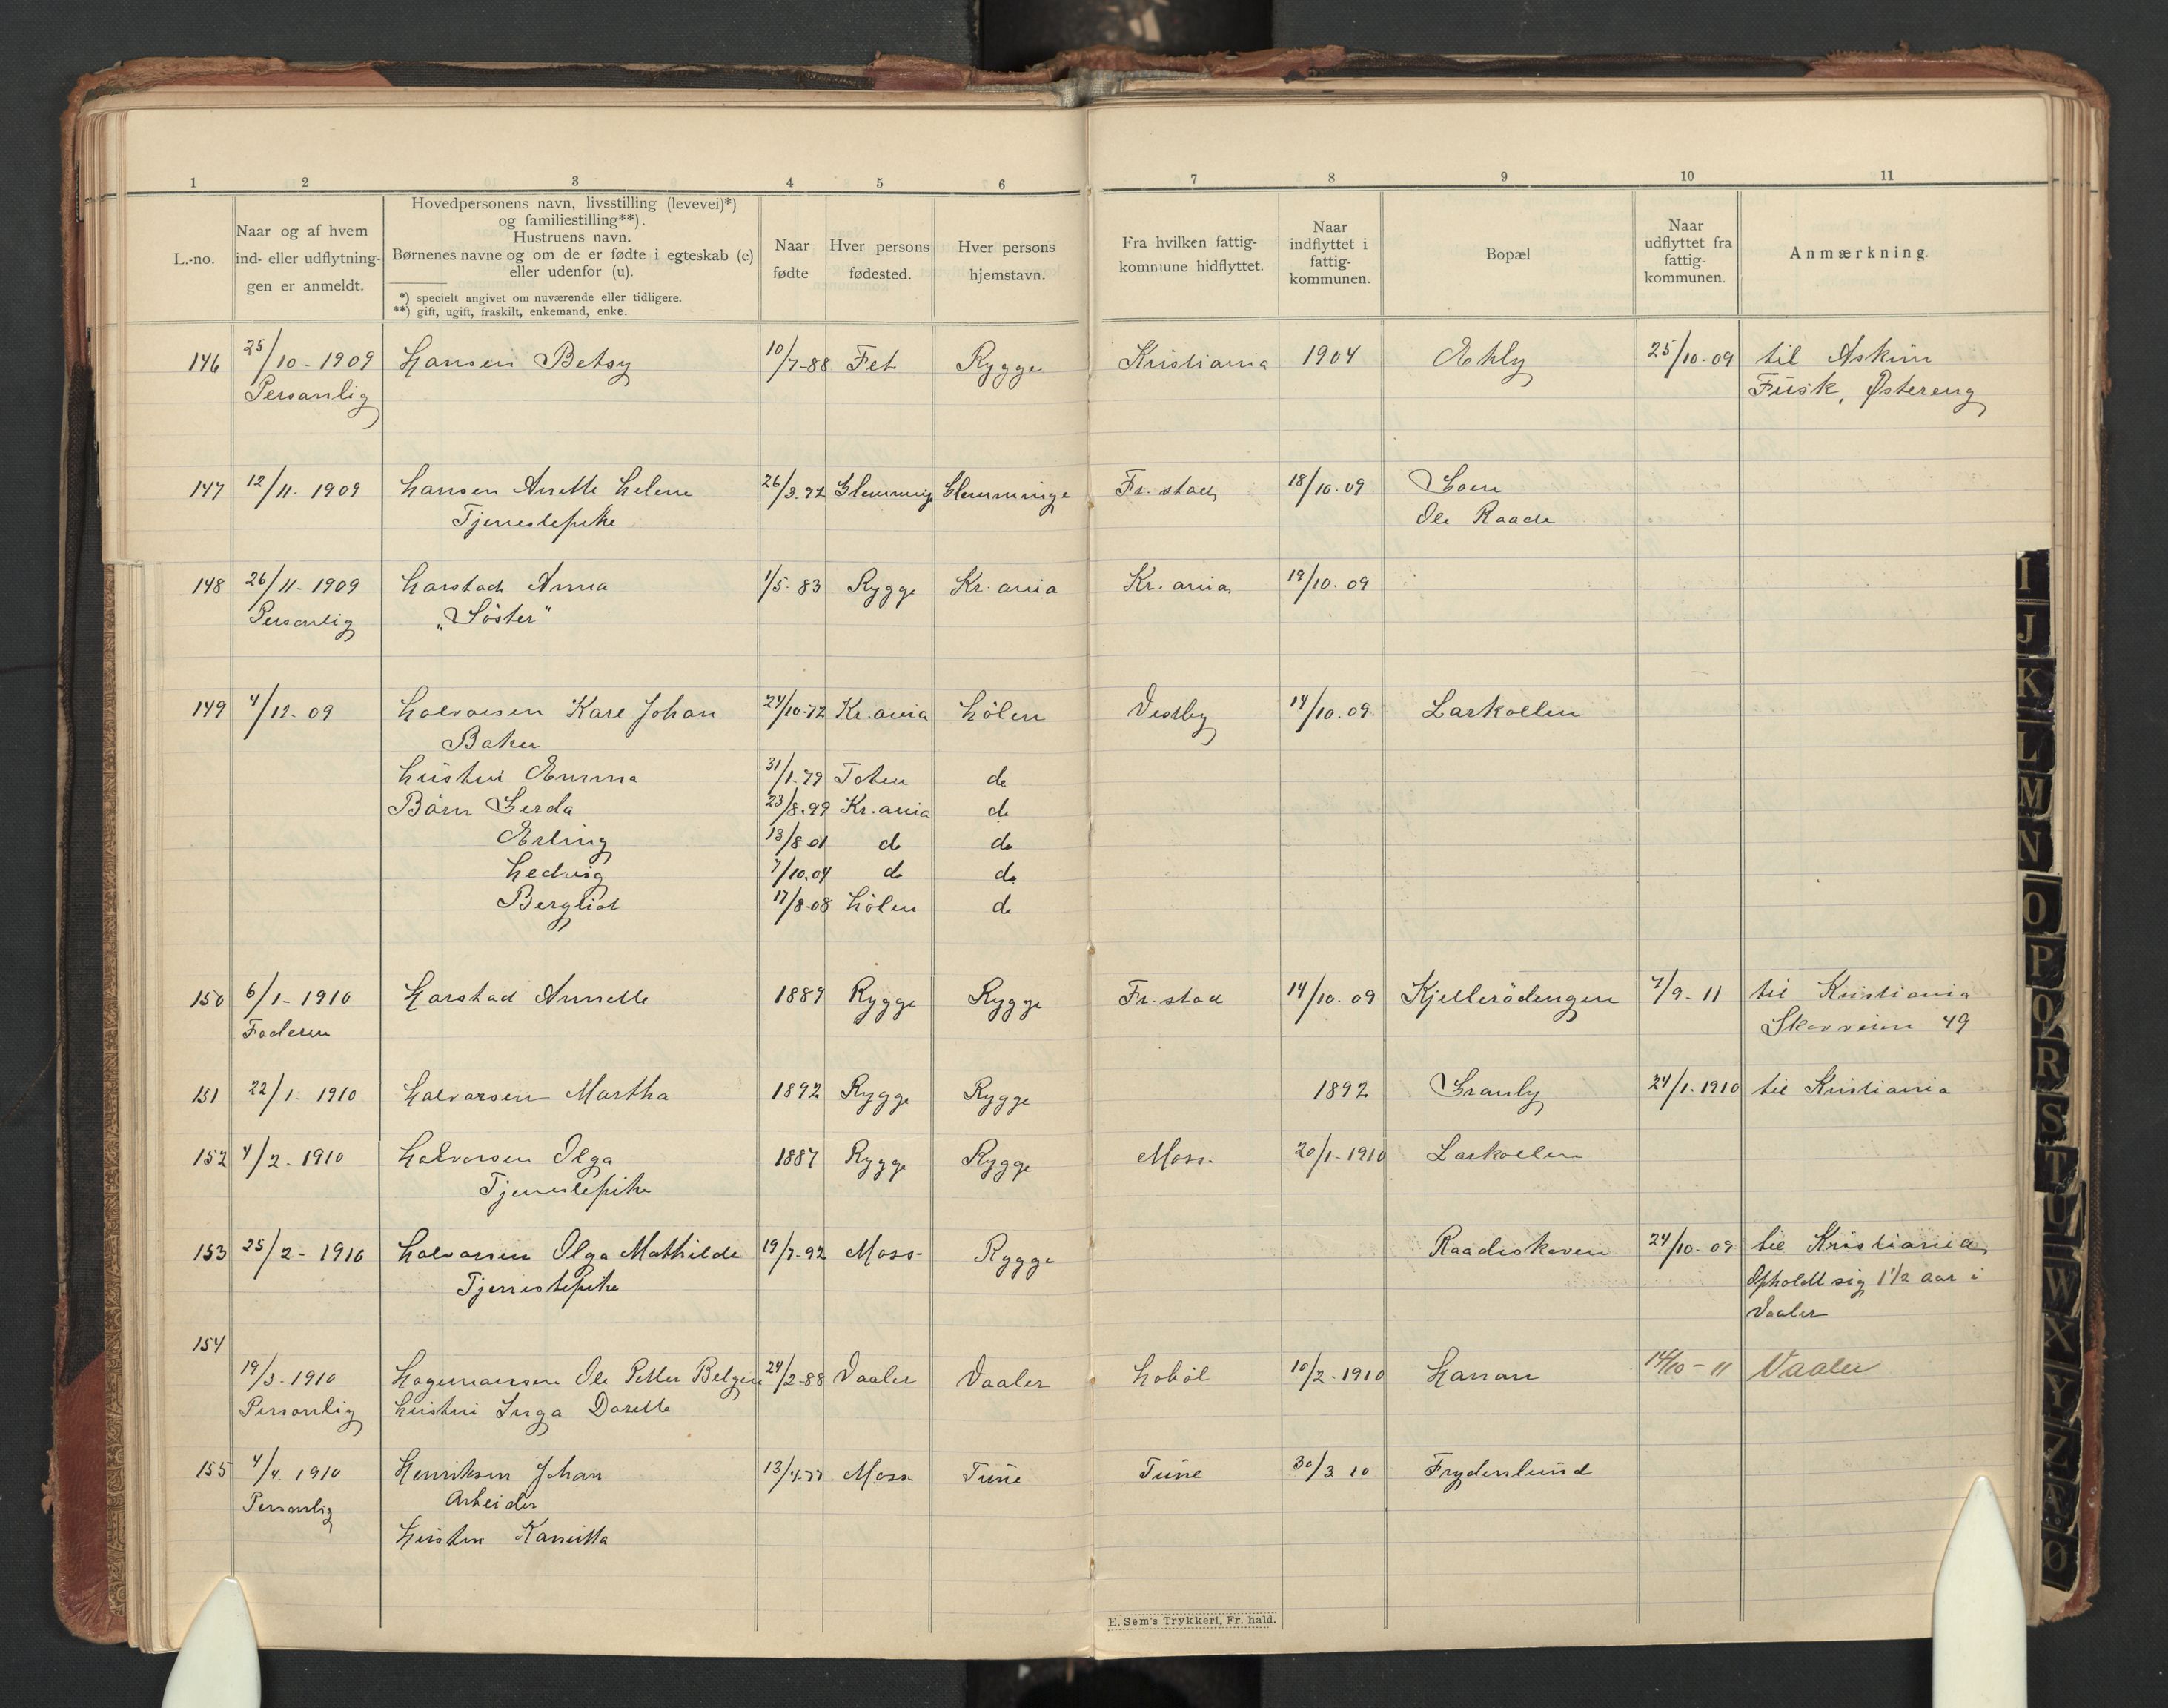 1 2 3 4 5 6 7 8 9 10 11
L.-no.
Naar og af hvem
ind- eller udflytnin-
gen er anmeldt.
Hovedpersonens navn, livsstilling (levevei)*)
og familiestilling**).
Hustruens navn.
Børnenes navne og om de er fødte i egteskab (e)
eller udenfor (u).
*) specielt angivet om nuværende eller tidligere.
**) gift, ugift, fraskilt, enkemand, enke.
Naar
fødte
Hver persons
fødested.
Hver persons
hjemstavn.
Fra hvilken fattig-
kommune hidflyttet.
Naar
indflyttet i
fattig-
kommunen.
Bopæl
Naar
udflyttet fra
fattig-
kommunen.
Anmærkning.
146 25/10-1909 Hansen Betsy 10/7-88 Fet Rygge Kristiania 1904 Ekly 25/10-09 til Askim
Personlig Fusk, Østereng
147 12/11-1909 Hansen Anette Helene 26/3-92 Glemminge Glemminge Fr.stad 18/10-09 Loen
Tjenestepike Ole Raade
148 26/11-1909 Harstad Anna 1/5-83 Rygge Kr.ania Kr.ania 19/10-09
Personlig „Söster"
149 4/12-09 Halvorsen Karl Johan 24/10-72 Kr.ania Hölen Vestby 14/10-09 Larkollen
Baker
Hustru Emma 31/1-79 Toten do
Börn Gerda 23/8-99 Kr.ania do
Erling 13/8-01 do do
Hedvig 7/10-04 do do
Bergliot 17/8-08 Hölen do
150 6/1-1910 Harstad Annette 1889 Rygge Rygge Fr.stad 14/10-09 Kjellerödengen 7/9-11 til Kristiania
Faderen Skovveien 49
151 22/1-1910 Halvorsen Martha 1892 Rygge Rygge 1892 Granly 24/1-1910 til Kristiania
152 4/2-1910 Halvorsen Olga 1887 Rygge Rygge Moss 20/1-1910 Larkollen
Tjenestepike
153 25/2-1910 Halvorsen Olga Mathilde 19/7-92 Moss Rygge Raadeskoven 24/10-09 til Kristiania
Tjenestepike Opholdt sig 1 1/2 aar i
Vaaler
154
19/3-1910 Hagemansen Ole Petter Belgen 24/2-88 Vaaler Vaaler Hobøl 10/2-1910 Hanan 14/10-11 Vaaler
Personlig Hustru Inga Dorette
155 4/4-1910 Henriksen Johan 13/4-77 Moss Tune Tune 30/3 10 Frydenlund
Personlig Arbeider
Hustru
E. Sem's Trykkeri, Fr. hald.
I
J
K
L
M
N
O
P
Q
R
S
T
U
W
X
Y
Z
Ø